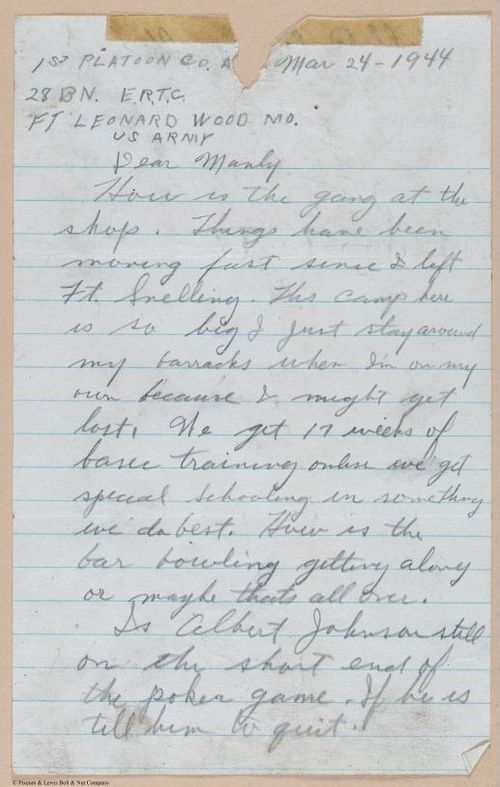 1ST PLATOON CO. A Mar 24-1944
28 BN. E.R.T.C.
FT LEONARD WOOD MO.
US ARMY
Dear Manly
How is the gang at the
shop. Things have been
moving fast since I left
Ft. Snelling. This camp here
is so big I just stay around
my barracks when I'm on my
own because I might get
lost. We get 17 weeks of
basic training unless we get
special schooling in something
we do best. How is the
bar bowling getting along
or maybe thats all over.
Is Albert Johnson still
on the short end of
the poker game. If he is
tell him to quit.
© Pixeum & Lewis Bolt & Nut Company